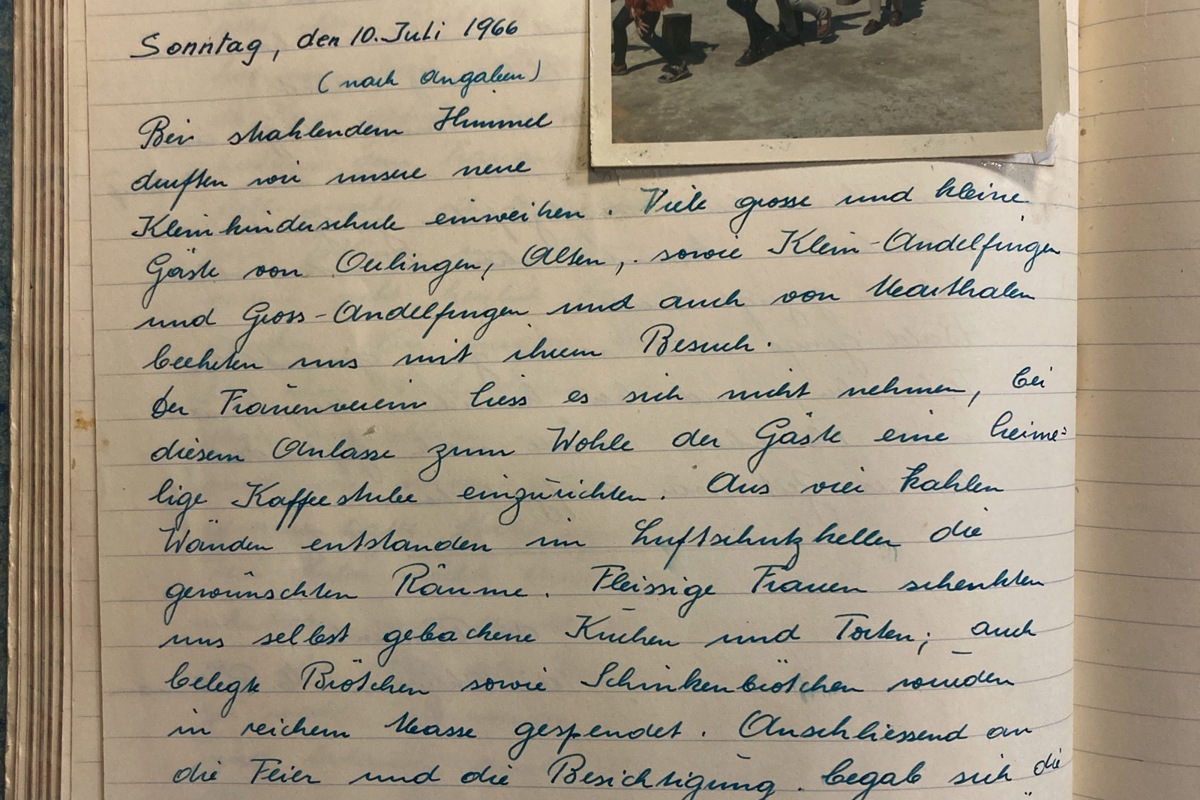 Sonntag, den 10. Juli 1966
(nach Angaben)
Bei strahlendem Himmel
durften wir unsere neue
Kleinkinderschule einweihen. Viele grosse und kleine
Gäste von Oerlingen, Alten, sowie Klein-Andelfingen
und Gross-Andelfingen und auch von Marthalen
beehrten uns mit ihrem Besuch.
Der Frauenverein liess es sich nicht nehmen, bei
diesem Anlasse zum Wohle der Gäste eine heime=
lige Kaffeestube einzurichten. Aus vier kahlen
Wänden entstanden im Luftschutzkeller die
gewünschten Räume. Fleissige Frauen schenkten
uns selbst gebackene Kuchen und Torten; auch
belegte Brötchen sowie Schinkenbrötchen wurden
in reichem Masse gespendet. Anschliessend an
die Feier und die Besichtigung begab sich die